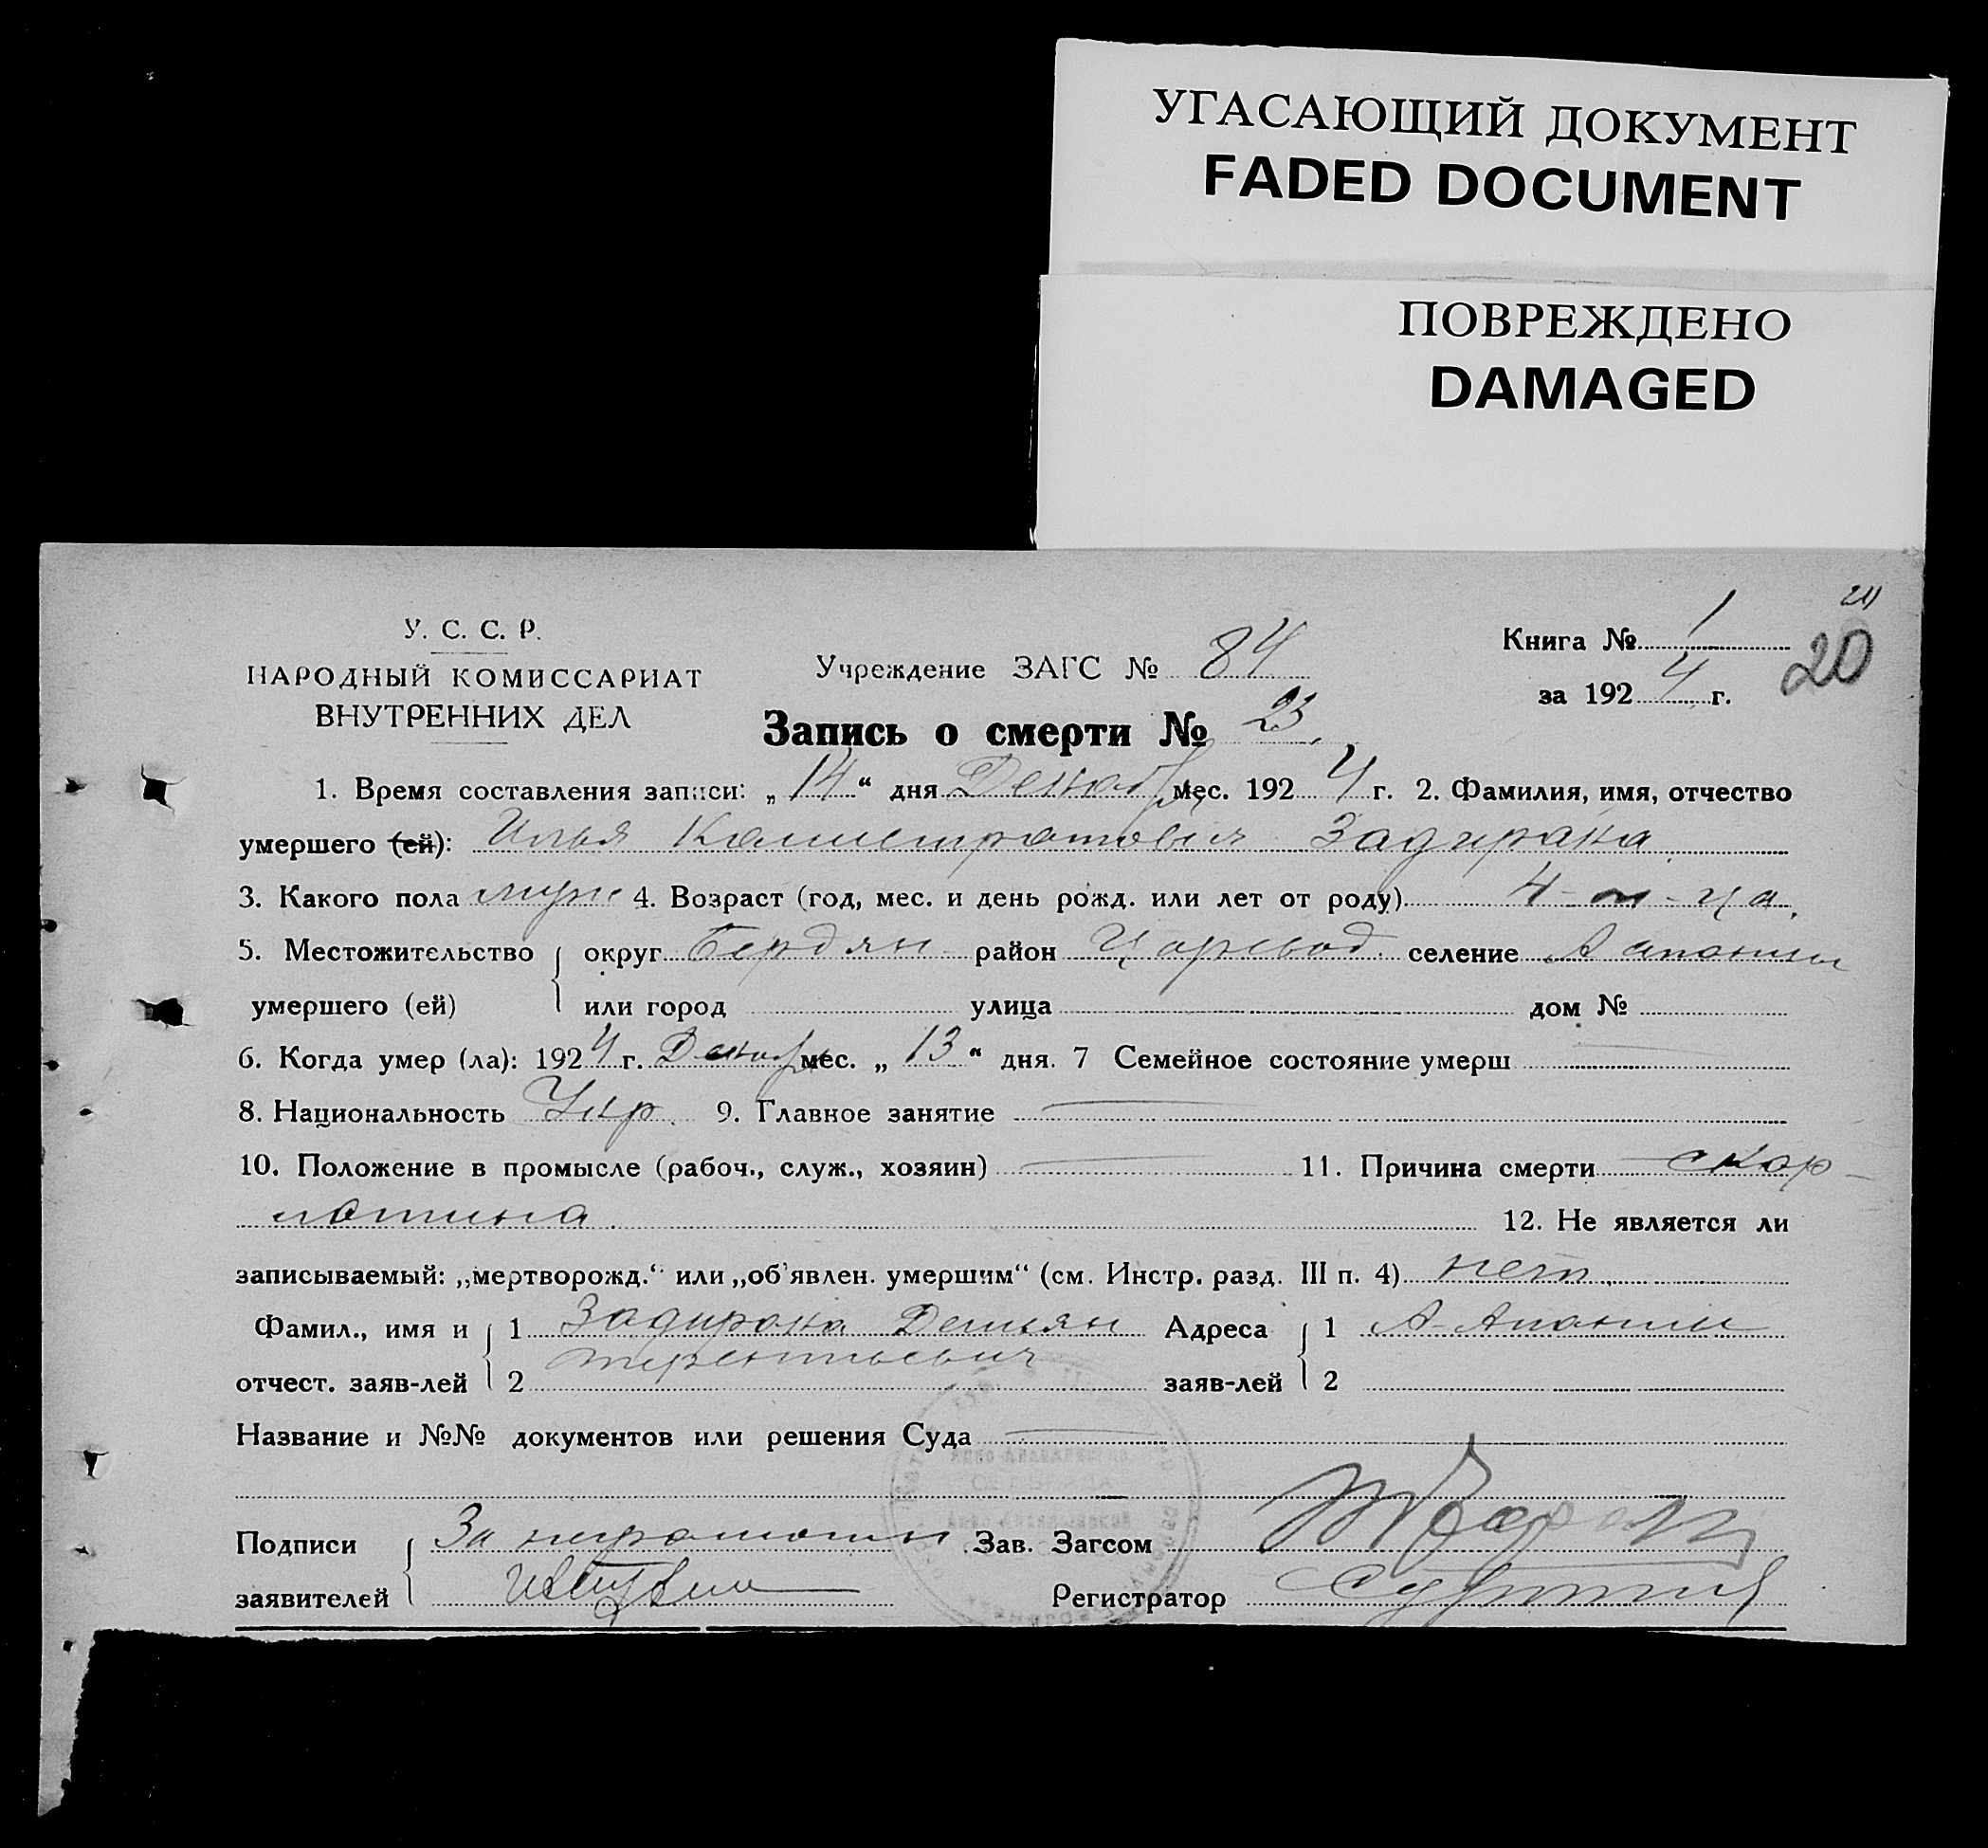 УГАСАЮЩИЙ ДОКУМЕНТ
FADED DOCUMENT
ПОВРЕЖДЕНО
DAMAGED
У. С. С. Р.
НАРОДНЫЙ КОМИССАРИАТ
ВНУТРЕННИХ ДЕЛ
Учреждение ЗАГС № 84
Книга № 1
за 1924 г.
20
Запись о смерти № 23.
1. Время составления записи: „14“ дня Декабр мес. 1924 г. 2. Фамилия, имя, отчество
умершего (ей): Илья Калистратович Задирака
3. Какого пола муж 4. Возраст (год, мес. и день рожд. или лет от роду) 4-м-ца.
5. Местожительство округ Бердян район Царевод селение
умершего (ей) или город улица дом №
6. Когда умер (ла): 1924 г. Декабр мес. „13“ дня. 7 Семейное состояние умерш
8. Национальность Укр. 9. Главное занятие
10. Положение в промысле (рабоч., служ., хозяин) 11. Причина смерти скар-
латина. 12. Не является ли
записываемый: „мертворожд.“ или „об'явлен. умершим“ (см. Инстр. разд. III п. 4) нет.
Фамил., имя и 1 Задирака Демьян Адреса 1
Терентьевич
отчест. заяв-лей 2 заяв-лей 2
Название и №№ документов или решения Суда
Подписи За Зав. Загсом
заявителей Регистратор